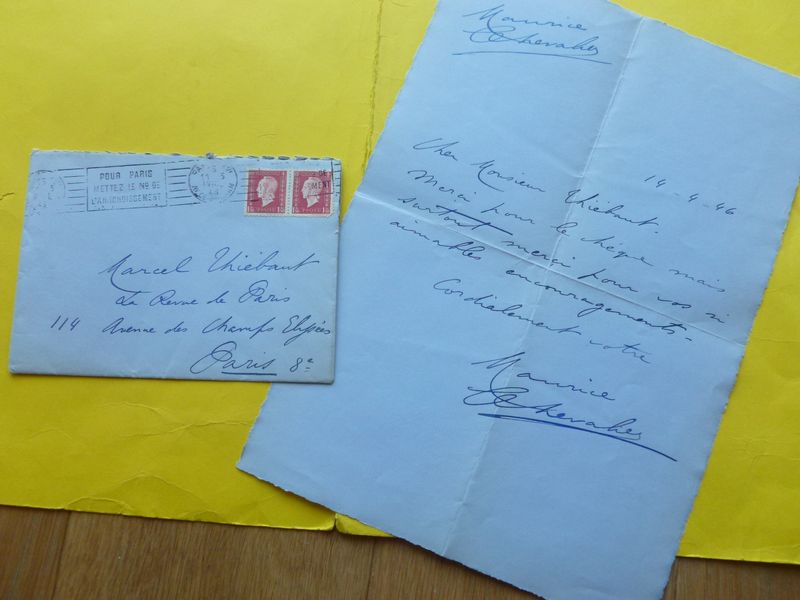 POUR PARIS
METTEZ LE No DE
L'ARRONDISSEMENT
Marcel Thiébaut
La Revue de Paris
114 Avenue des Champs Elysées
Paris 8e
Maurice
Chevalier
14-4-46
Cher Monsieur Thiébaut.
Merci pour le chèque mais
surtout merci pour vos si
aimables encouragements-
Cordialement votre
Maurice
Chevalier